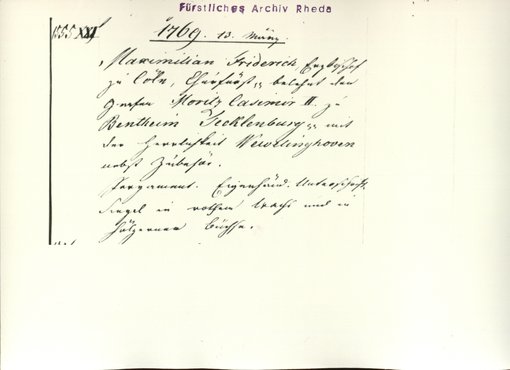 Fürstliches Archiv Rheda
1769. 13. März.
Maximilian Friderich, Erzbischof
zu Cöln, Churfürst, belehnt den
Grafen Moritz Casimir II. zu
Bentheim Tecklenburg mit
der Herrlichkeit Wewelinghoven
nebst Zubehör.
Pergament. Eigenhänd. Unterschrift.
Siegel in rothem Wachs und in
hölzerner Büchse.